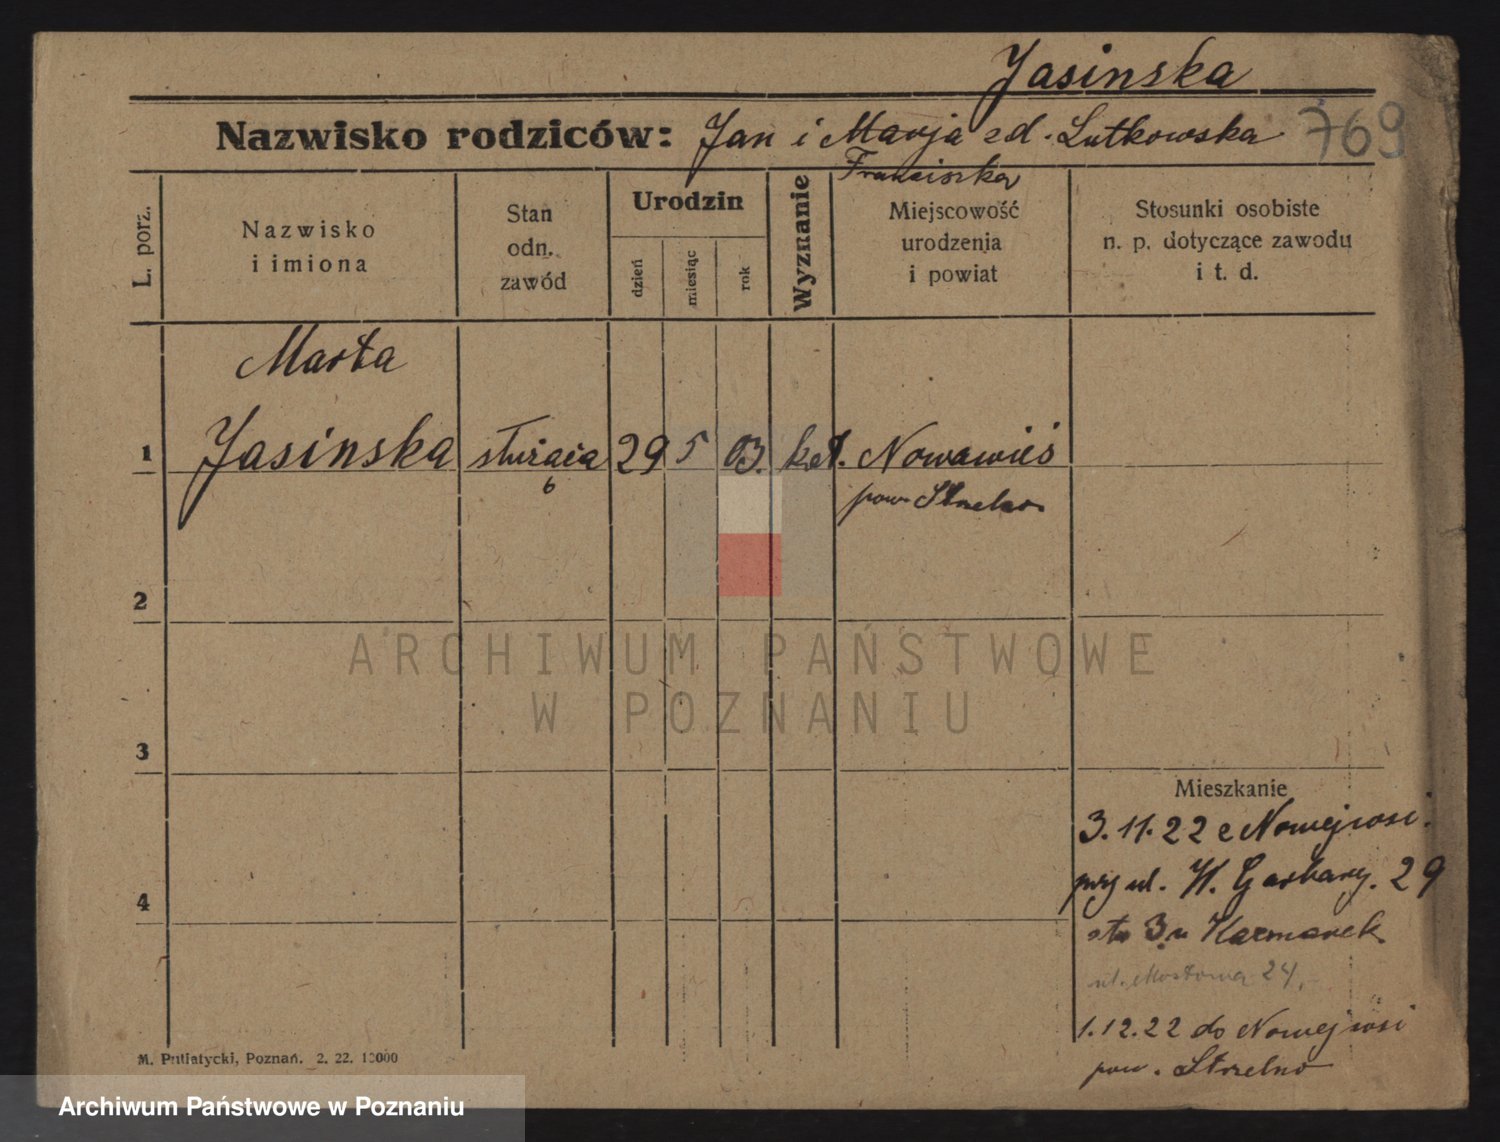 Jasinska
Nazwisko rodziców: Jan i Marja zd. Lutkowska 769
Franciszka
L. porz.
Nazwisko
i imiona
Stan
odn.
zawód
Urodzin
dzień
miesiąc
rok
Wyznanie
Miejscowość
urodzenia
i powiat
Stosunki osobiste
n. p. dotyczące zawodu
i t. d.
Marta
1 Jasinska służąca 29 5 03. kat. Nowawieś
6
pow. Strzelno
2
ARCHIWUM PAŃSTWOWE
W POZNANIU
3
Mieszkanie
3.11.22 z Nowejwsi.
przy ul. W. Garbary. 29
4
3 u Karmanek
ul. Mostowa 24,
1.12.22 do Nowejwsi
pow. Strzelno
M. Putiatycki, Poznań. 2. 22. 10000
Archiwum Państwowe w Poznaniu